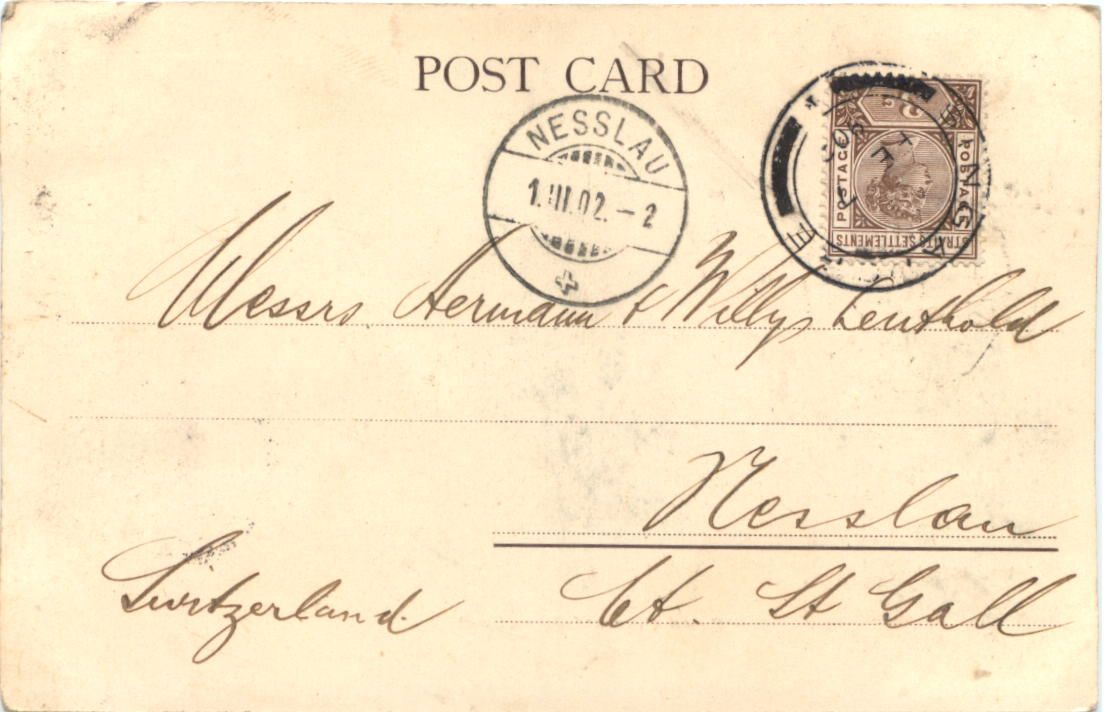 POST CARD
NESSLAU
1.III.02.-2
POSTAGE
POSTAGE
STRAITS SETTLEMENTS
Messrs. Hermann & Willy Leuthold
Nesslau
Switzerland. Ct. St Gall